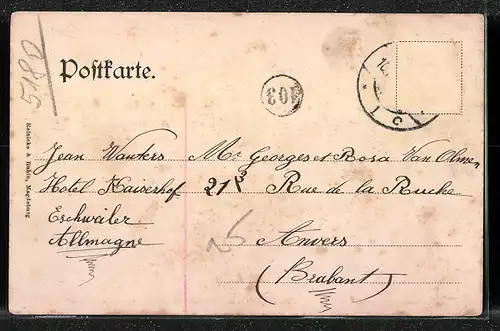 5180
Postkarte.
103
C
Reinicke & Rubin, Magdeburg
Jean Wauters
Hotel Kaiserhof
Eschweiler
Allmagne
Mr Georges et Rosa Van Olmen
21 Rue de la Ruche
Anvers
(Brabant)